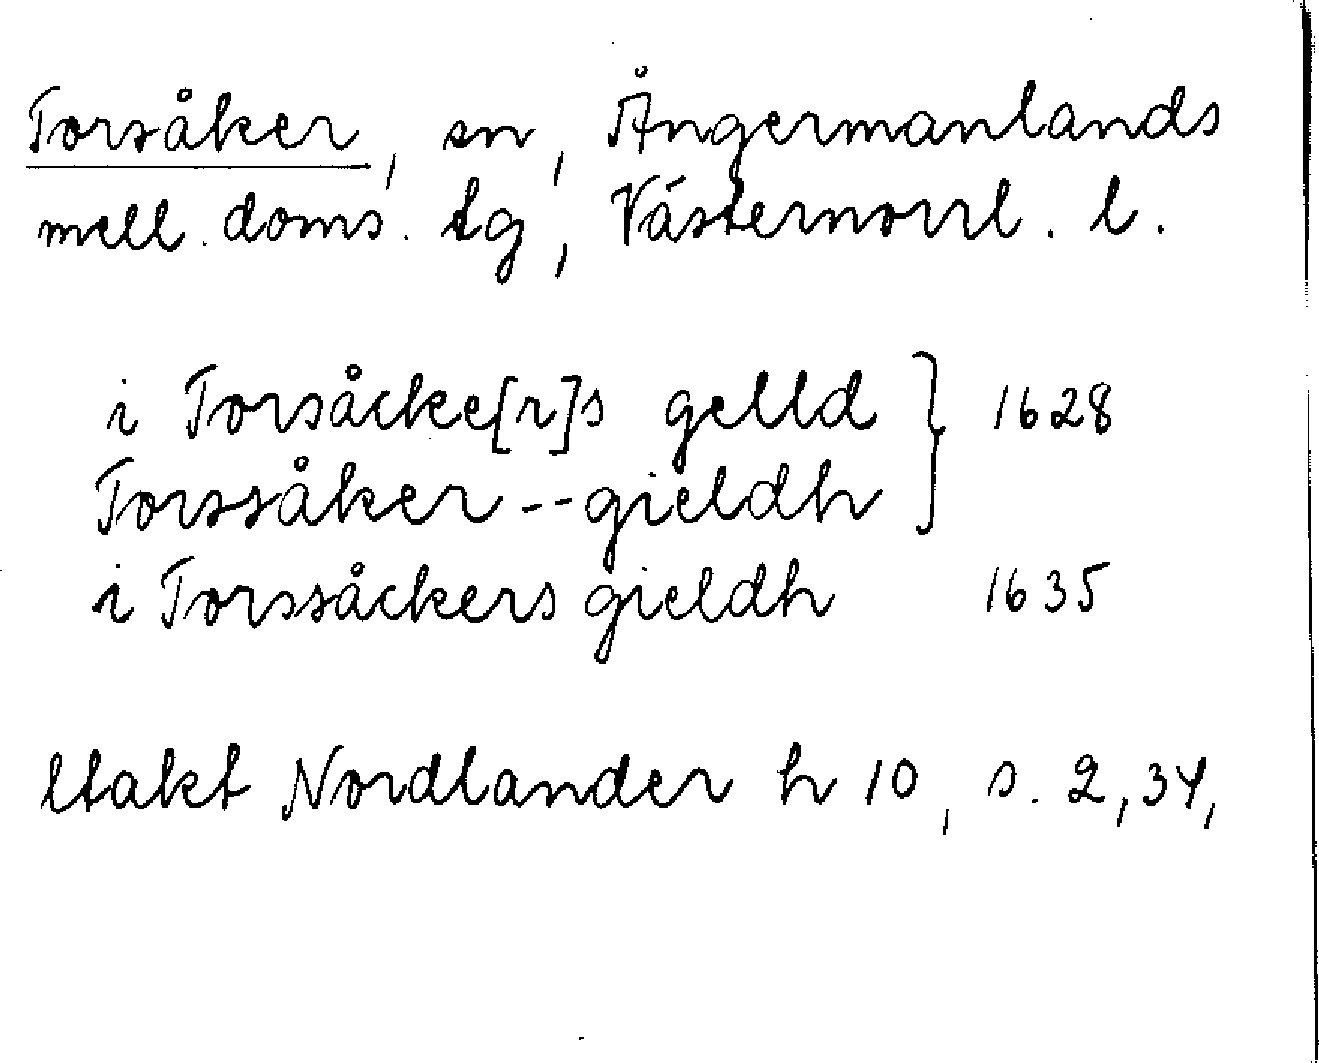 Torsåker, sn, Ångermanlands
mell. doms. tg, Västernorrl. l.
i Torsåcke[r]s gelld } 1628
Torssåker -- gieldh
i Torssåckers gieldh 1635
Utakt Nordlander h 10, s. 2, 34,